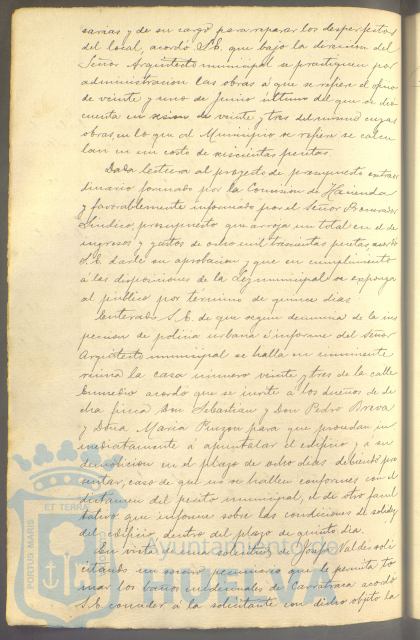 sarias y de su cargo para reparar los desperfectos
del local, acordó S.E. que bajo la dirección del
Señor Arquitecto municipal se practiquen por
administracion las obras á que se refiere el oficio
de veinte y uno de Junio último del que se dió
cuenta en sesion de veinte y tres del mismo cuyas
obras en lo que al Municipio se refiere se calcu
lan en un costo de seiscientas pesetas.
Dada lectura al proyecto de presupuesto extraor
dinario formado por la Comision de Hacienda
y favorablemente informado por el Señor Procurador
Síndico, presupuesto que arroja un total en el de
ingresos y gastos de ocho mil trescientas pesetas acordó
S.E. darle su aprobacion y que en cumplimiento
á las disposiciones de la Ley municipal se exponga
al público por término de quince dias.
Enterado S.E. de que segun denuncia de la ins
peccion de policia urbana é informe del Señor
Arquitecto municipal se halla en inminente
ruina la casa número veinte y tres de la calle
Enmedio acordó que se invite á los dueños de di
cha finca Don Sebastian y Don Pedro Breva
y Doña Maria Pinzon para que procedan in
mediatamente á apuntalar el edificio y á su
demolicion en el plazo de ocho dias debiendo pre
sentar, caso de que no se hallen conformes con el
dictamen del perito municipal, el de otro facul
tativo que informe sobre las condiciones de solidez
del edificio dentro del plazo de quinto dia.
En vista de la solicitud de Josefa Valdes soli
citando un socorro pecuniario que le permita to
mar los baños medicinales de Carratraca acordó
S.E. conceder á la solicitante con dicho objeto la
PORTUS MARIS ET TERRAE
Ayuntamiento de
HUELVA